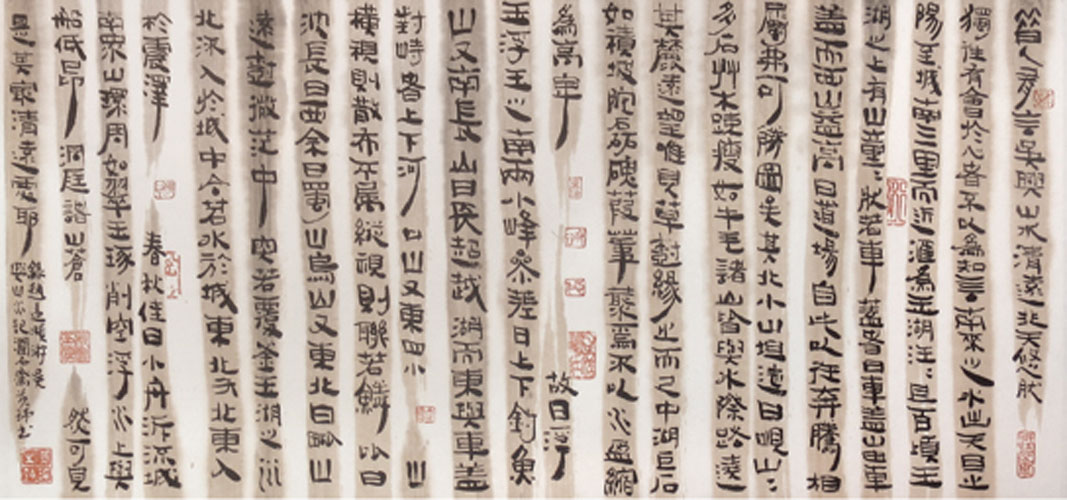 昔人有言吳興山水清遠非夫悠然
獨往有會於心者不以為知言南來之水出天目之
陽至城南三里而近匯為玉湖汪汪且百頃玉
湖之上有山童〻狀若車蓋者曰車蓋山由車
蓋而西山益高曰道場自此以往奔騰相
屬弗可勝圖矣其北小山坦迤曰峴山〻
多石艸木疎瘦如牛毛諸山皆與水際路遶
其麓遠望惟見草樹緣之而已中湖巨石
如積坡陀磊磈葭葦叢焉不以水盈縮
為高卑 故曰浮
玉浮玉之南兩小峰參差曰上下釣魚
山又南長山曰長超越湖而東與車蓋
對峙者上下河口山又東四小山
橫視則散布不屬縱視則聯若鱗比曰
沈長曰西余曰蜀山烏山又東北曰毗山
遠樹微茫中突若覆釜玉湖之水
北流入於城中合苕水於城東北又北東入
於震澤 春秋佳日小舟泝流城
南眾山環周如翠玉琢削空浮水上與
船低昂 洞庭諸山蒼然可見
是其最清遠處耶